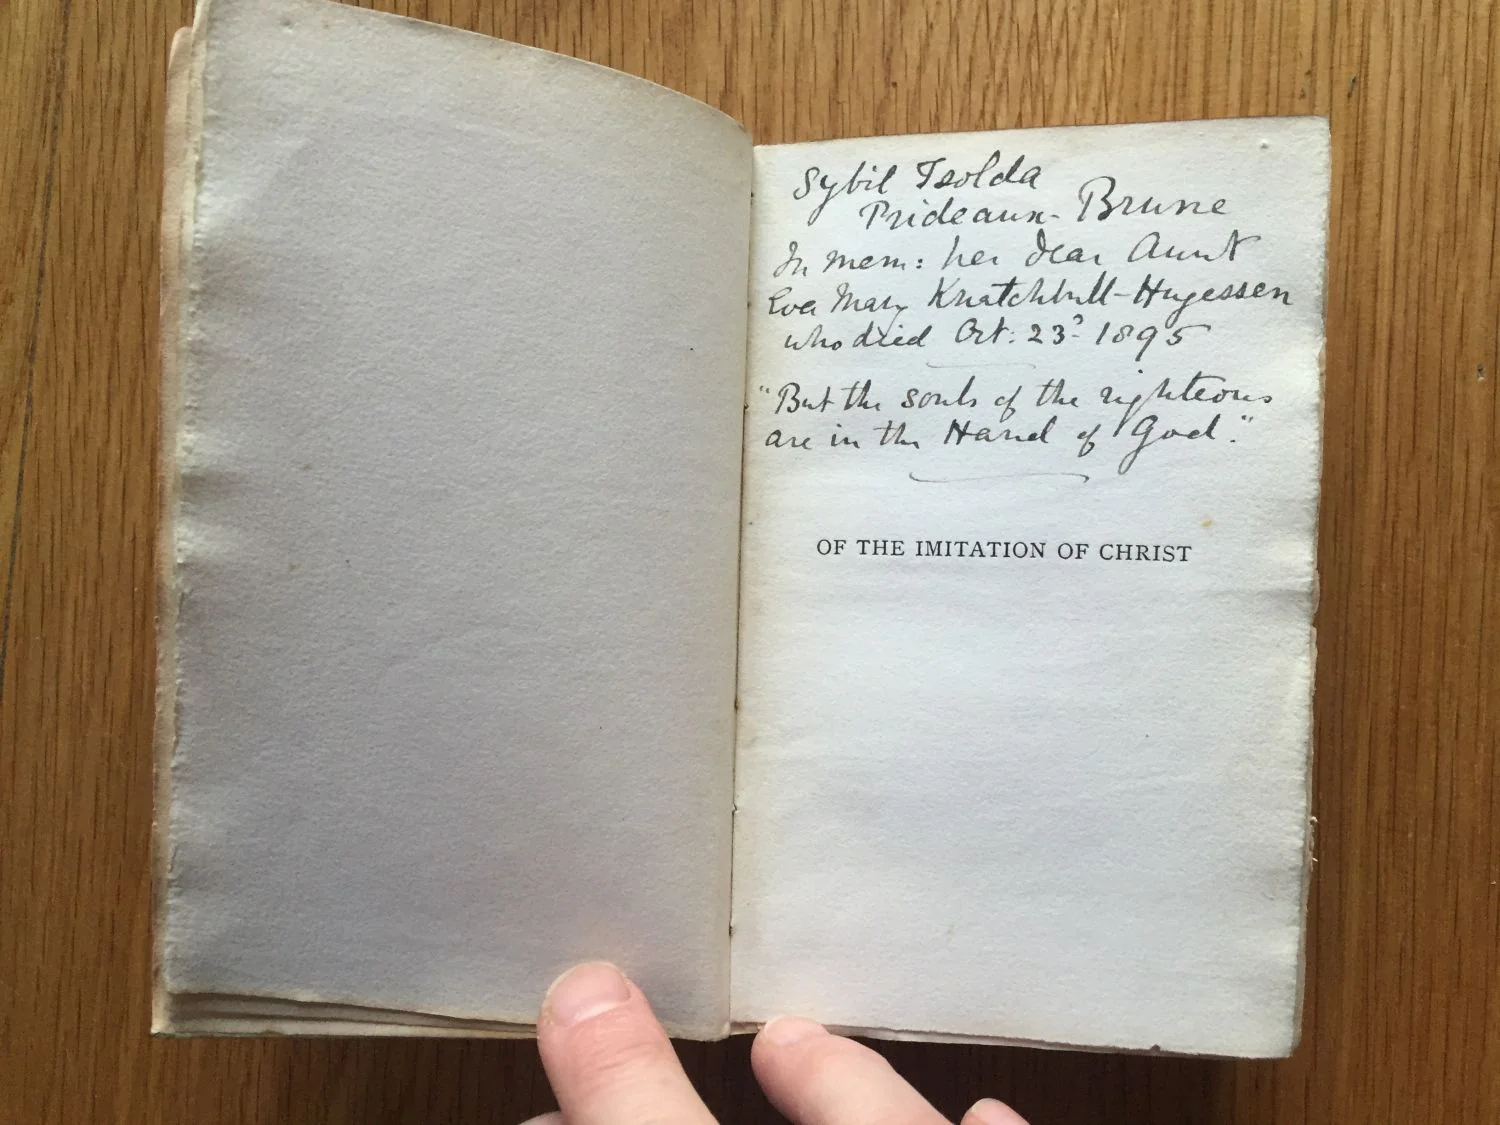 Sybil Isolda
Prideaux-Brune
In mem: her dear Aunt
Eva Mary Knatchbull-Hugessen
who died Oct: 23? 1895
"But the souls of the righteous
are in the Hand of God."
OF THE IMITATION OF CHRIST